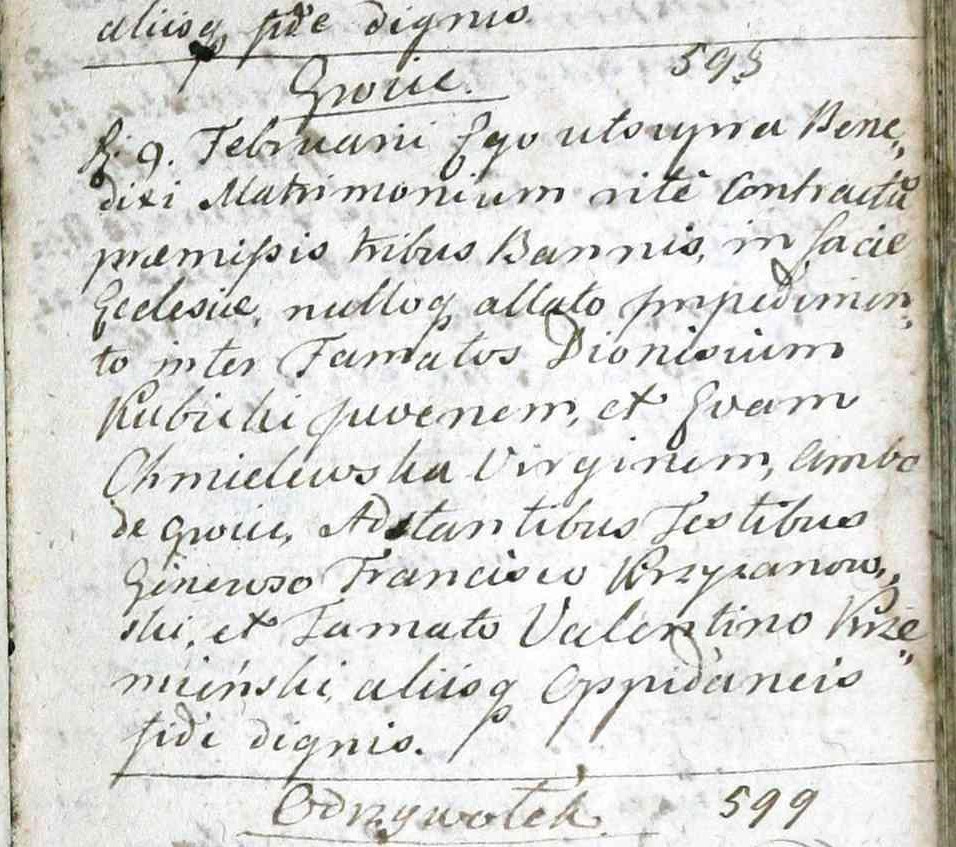 aliisq fide dignis
Groiie. 598
D. 9. Februarii Ego ut supra Bene„
dixi Matrimonium ritè Contractū
præmissis tribus Bannis, in facie
Ecclesiæ, nulloq allato Impedimen„
to inter Famatos Dionisium
Kubicki Juvenem, et Evam
Chmielewska Virginem, ambo
de Groiie, Adstantibus Testibus
Generoso Francisco Krzyzanow„
ski, et Famato Valentino Krze„
mieński, aliisq Oppidaneis
fide dignis.
Odrzywołek. 599